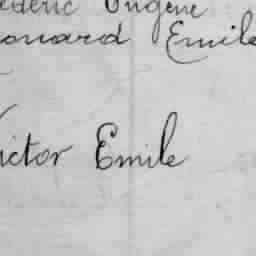 ederic Eugene
onard Emile
ictor Emile